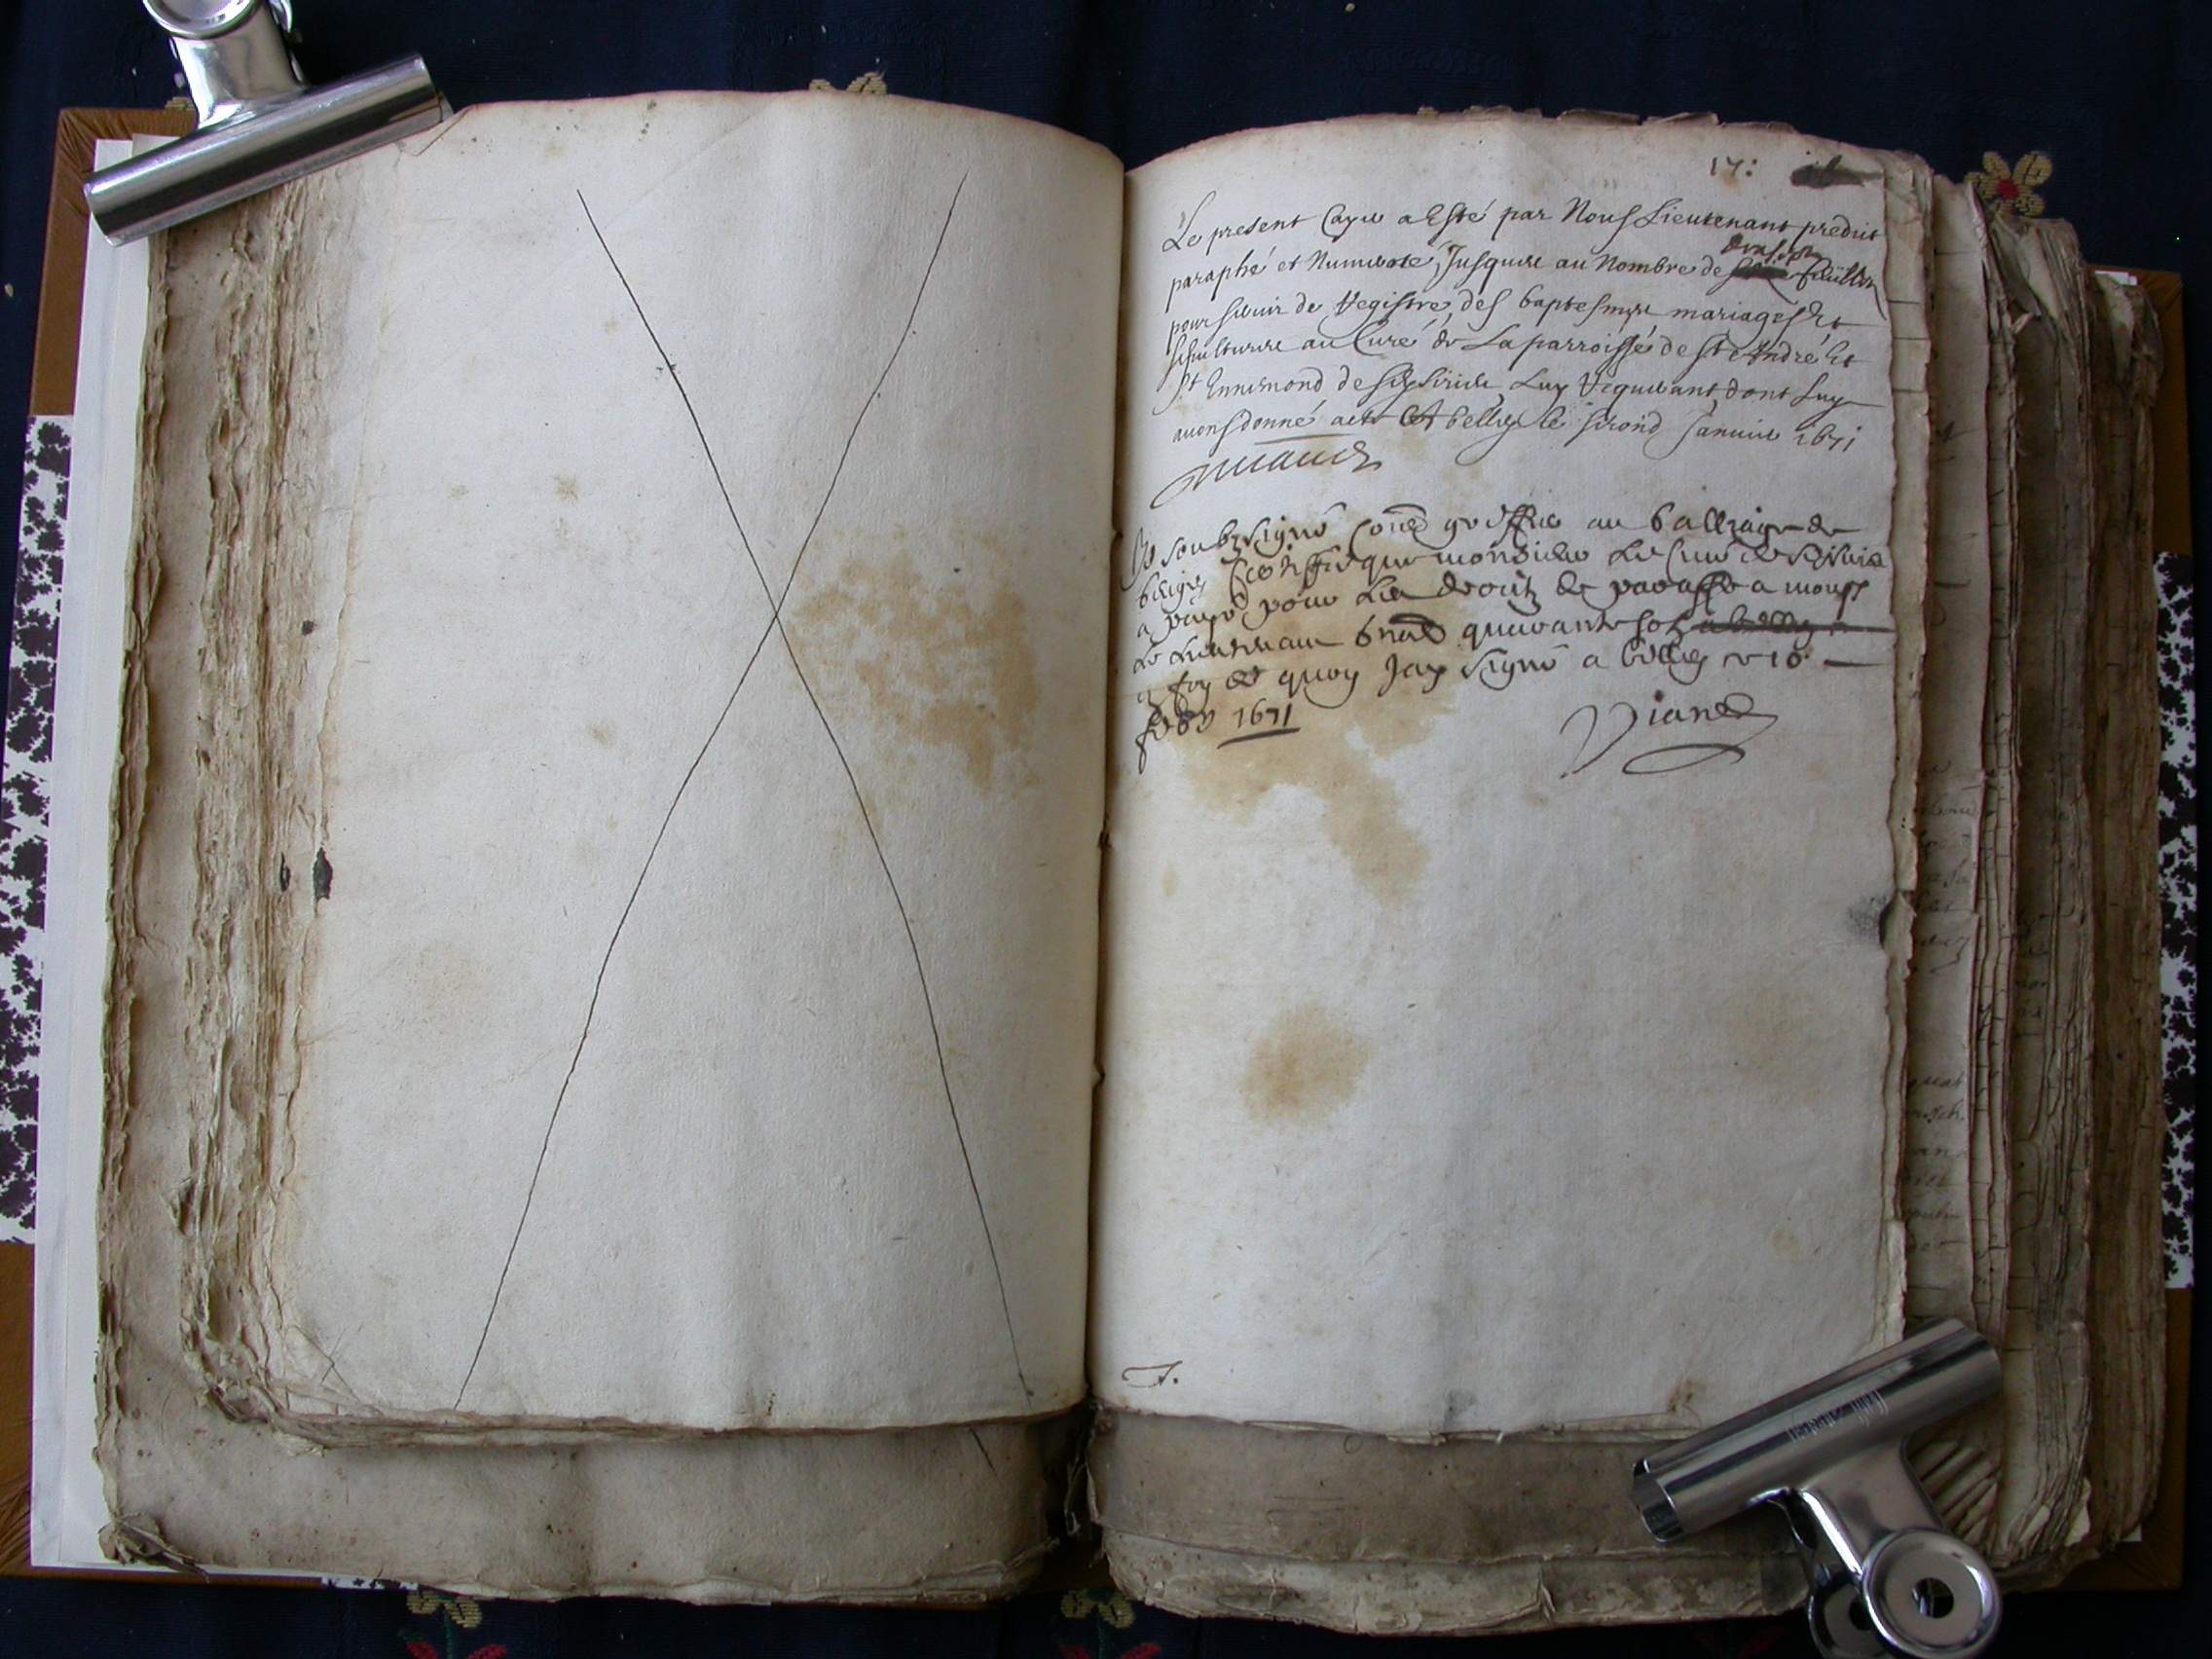 17:
Le present Cayer a Esté par Nous Lieutenant predict
paraphé et Numeroté, Jusques au Nombre de feuilles
pour servir de Registre, des baptesmes mariages Et
sepultures au Curé de La parroisse de St André Et
St Ennemond de Luy Requerant, dont Luy
avons donné acte A belley le second Janvier 1671
Je soubzsigné greffier au balliage de
belley Certiffie que monsieur Le Curé de
a payé pour Les droitz de paraffe a monsr
Le Lieutenant quarante sols
en foy de quoy Jay signé a belley ce 10
febv 1671
Vianet